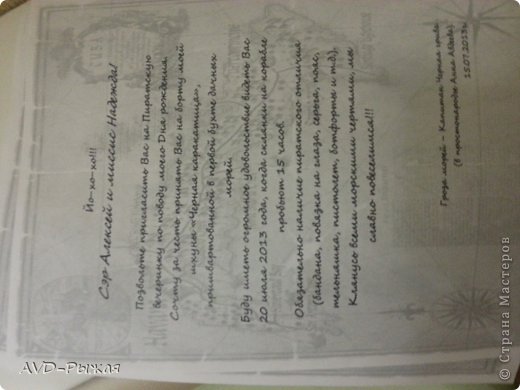 Йо-хо-хо!!!
Сэр Алексей и миссис Надежда!
Позвольте пригласить Вас на Пиратскую
вечеринку по поводу моего Дня рождения.
Сочту за честь принять Вас на борту моей
шхуны «Черная каракатица»,
пришвартованной в первой бухте дачных
морей.
Буду иметь огромное удовольствие видеть Вас
20 июля 2013 года, когда склянки на корабле
пробьют 15 часов.
Обязательно наличие пиратского отличия
(бандана, повязка на глаза, серьга, пояс,
тельняшка, пистолет, ботфорты и т.д.).
Клянусь всеми морскими чертями, мы
славно повеселимся!!!
Гроза морей - Капитан Черная грива
(в простонародье Анна
15.07.2013г.
AVD-Рыжая
© Страна Мастеров